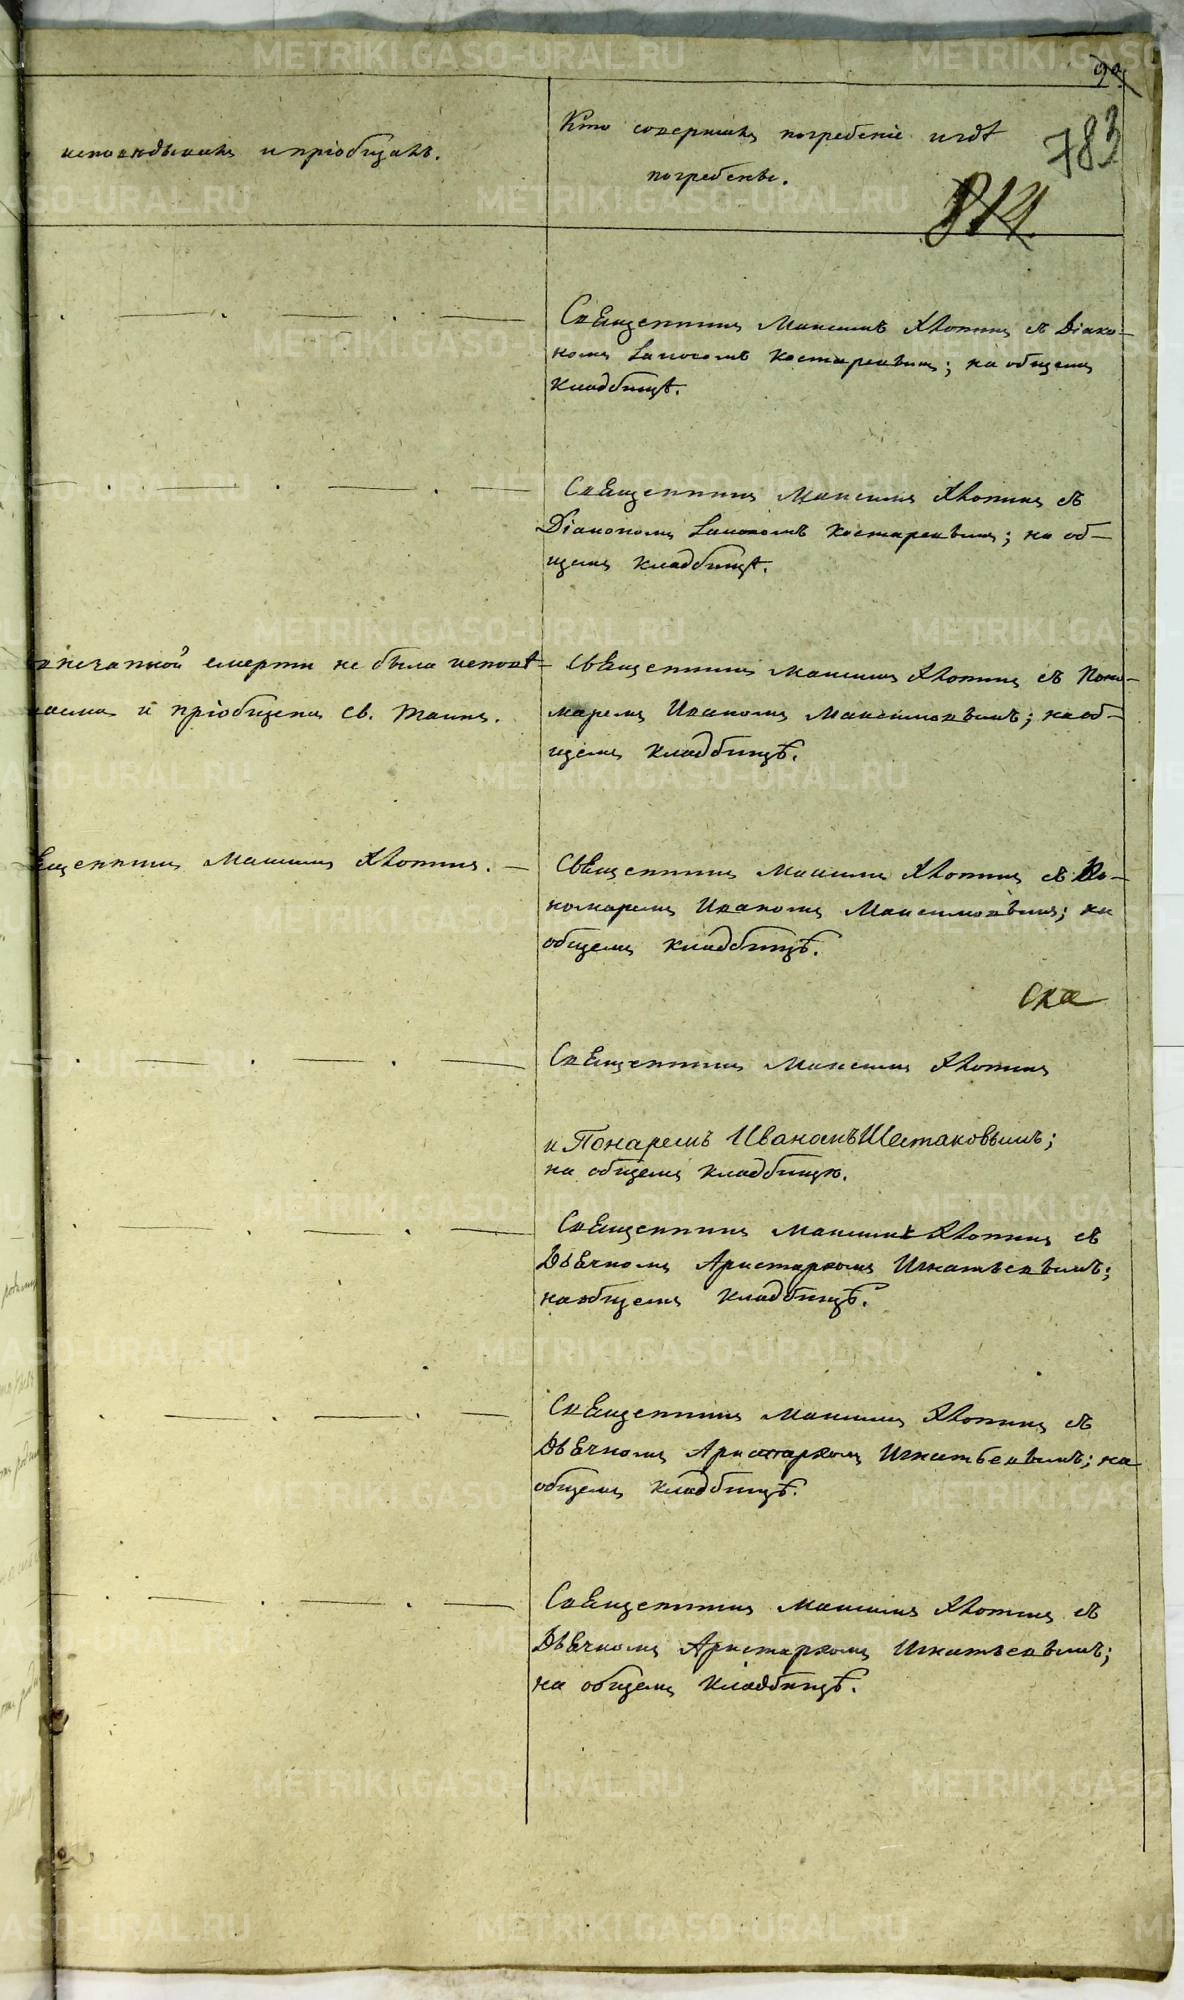 783
814.
исповѣдывалъ и пріобщалъ.
Кто совершилъ погребеніе и гдѣ
погребены.
Священникъ Максимъ Хлопинъ съ Діако-
номъ Костаревымъ; на общемъ
кладбищѣ.
Священникъ Максимъ Хлопинъ съ
Діакономъ Костаревымъ; на об-
щемъ кладбищѣ.
смерти не была исповѣ-
и пріобщена Св. Таинъ.
Священникъ Максимъ Хлопинъ съ Поно-
маремъ Иваномъ Максимовымъ; на об-
щемъ кладбищѣ.
Максимъ Хлопинъ.
Священникъ Максимъ Хлопинъ съ По-
номаремъ Иваномъ Максимовымъ; на
общемъ кладбищѣ.
Священникъ Максимъ Хлопинъ
и Понаремъ Иваномъ Шестаковымъ;
на общемъ кладбищѣ.
Священникъ Максимъ Хлопинъ съ
Дьячкомъ Аристархомъ Игнатьевымъ;
на общемъ кладбищѣ.
Священникъ Максимъ Хлопинъ съ
Дьячкомъ Аристархомъ Игнатьевымъ; на
общемъ кладбищѣ.
Священникъ Максимъ Хлопинъ съ
Дьячкомъ Аристархомъ Игнатьевымъ;
на общемъ кладбищѣ.
METRIKI.GASO-URAL.RU